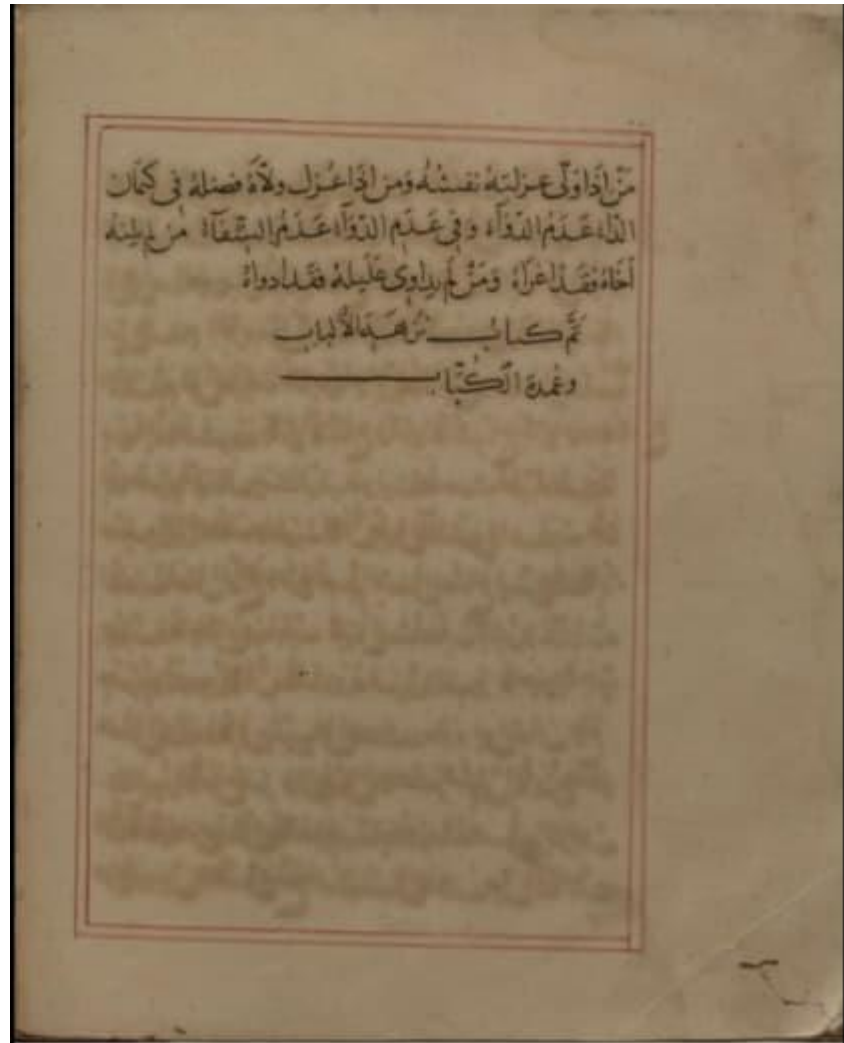 مَنْ إذَا وَلّى عزلتهُ نفسُهُ وَمن إذَا عُزِل ولاّهُ فضلهُ في كتمان
الدّاء عَدَمُ الدّوَآء وَفي عَدَم الدّوَآء عَدَمُ الشِّفَآء مَن لم يلنه
أخَاهُ فقَد اغرَاهُ وَمَنْ لَم يداوِى عَليله فقَد ادواهُ
تَمَّ كتابُ نزهَة الألباب
وعُمدة الكُتّاب